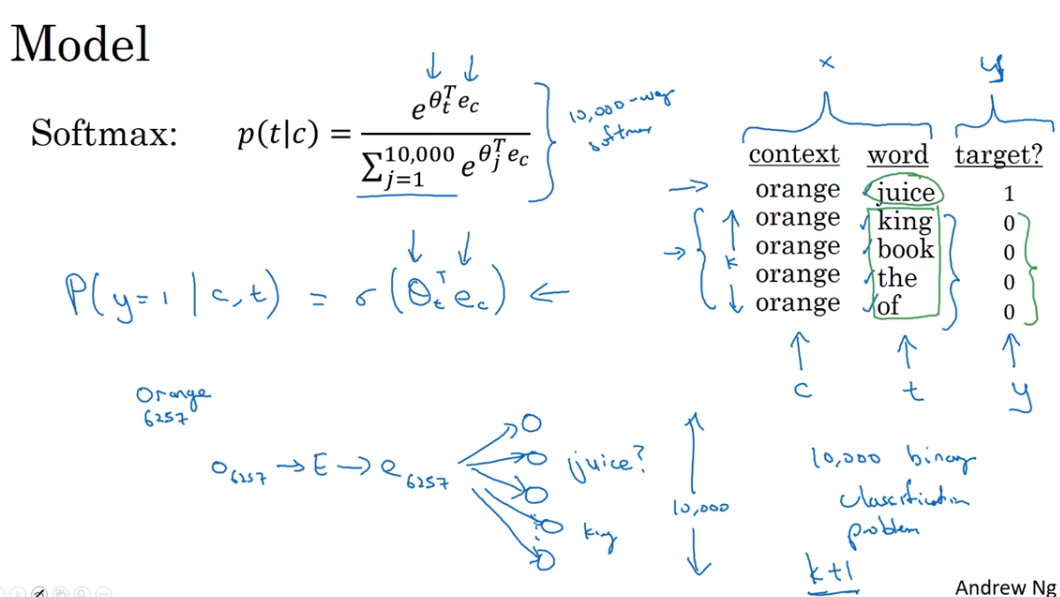 Model
Softmax: p(t|c) = e^{θ_t^T e_c} / Σ_{j=1}^{10,000} e^{θ_j^T e_c}
10,000-way
softmax
x y
context word target?
orange juice 1
orange king 0
orange book 0
orange the 0
orange of 0
k
c t y
P(y=1 | c, t) = σ(θ_t^T e_c)
Orange
6257
o_6257 → E → e_6257
juice?
king
10,000
10,000 binary
classification
problem
k+1
Andrew Ng